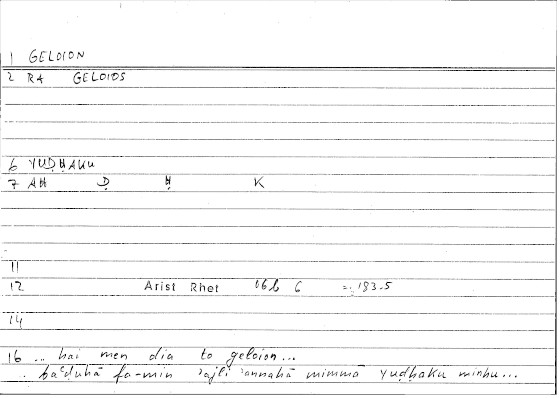 1 GELOION
2 R4 GELOIOS
6 YUḌḤAKU
7 AH Ḍ Ḥ K
11
12 Arist Rhet 06b 6 = 183.5
14
16 .. hai men dia to geloion...
. baʿḍuhā fa-min ʾajli ʾannahā mimmā yuḍḥaku minhu...